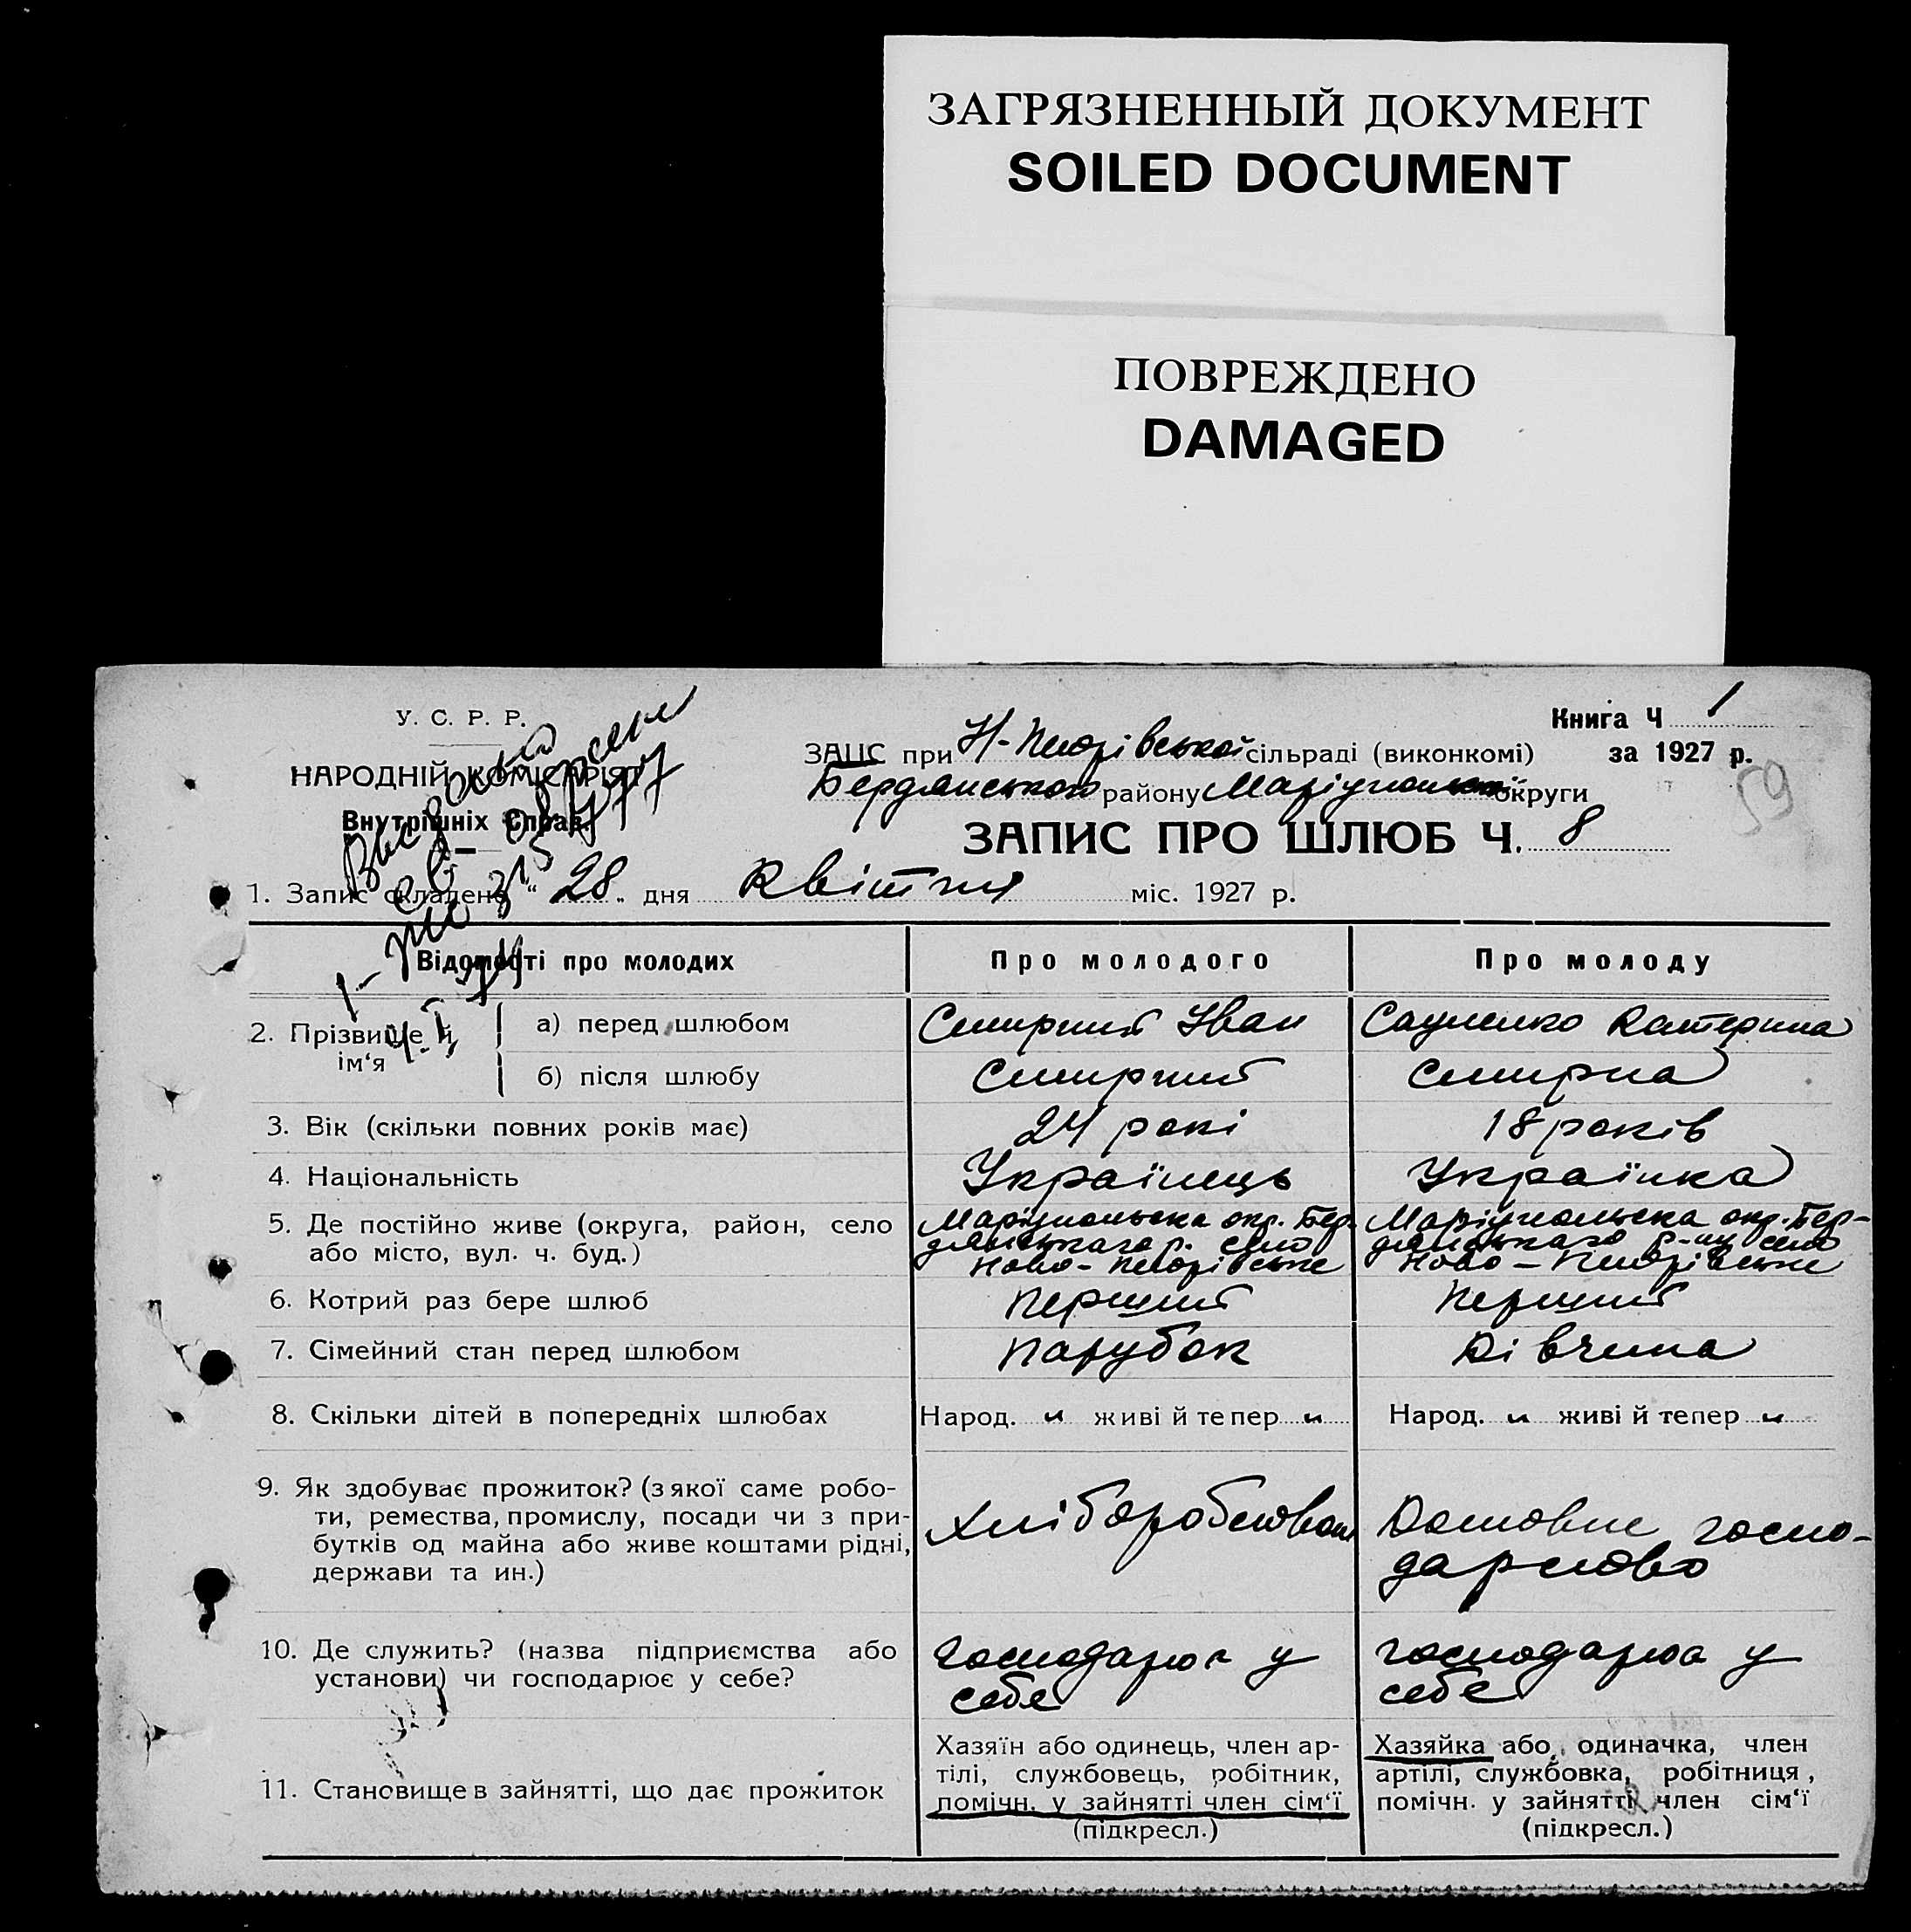 ЗАГРЯЗНЕННЫЙ ДОКУМЕНТ
SOILED DOCUMENT
ПОВРЕЖДЕНО
DAMAGED
У. С. Р. Р.
НАРОДНІЙ КОМІСАРІЯТ
Внутрішніх Справ.
Книга Ч 1
за 1927 р.
59
ЗАЦС при Н-Петрівської сільраді (виконкомі)
Бердянського району Маріупольської округи
ЗАПИС ПРО ШЛЮБ Ч. 8
1. Запис складено „ 28 „ дня Квітня міс. 1927 р.
Відомості про молодих Про молодого Про молоду
2. Прізвище й ім‘я
а) перед шлюбом Смирний Іван Сауленко Катерина
б) після шлюбу Смирний Смирна
3. Вік (скільки повних років має) 24 рокі 18 років
4. Національність Українець Українка
5. Де постійно живе (округа, район, село
або місто, вул. ч. буд.)
Маріупольська окр. Бер-
дянськаго р. село
Ново-Петрівське
Маріупольська окр. Бер-
дянськаго р-ну село
Ново-Петрівське
6. Котрий раз бере шлюб Перший Перший
7. Сімейний стан перед шлюбом Парубок Дівчина
8. Скільки дітей в попередніх шлюбах Народ. „ живі й тепер „ Народ. „ живі й тепер „
9. Як здобуває прожиток? (з якої саме робо-
ти, ремества, промислу, посади чи з при-
бутків од майна або живе коштами рідні,
держави та ин.)
Хліборобством
Домовне госпо-
дарство
10. Де служить? (назва підприємства або
установи) чи господарює у себе?
господарює у
себе
господарює у
себе
11. Становище в зайнятті, що дає прожиток
Хазяїн або одинець, член ар-
тілі, службовець, робітник,
помічн. у зайнятті член сім‘ї
(підкресл.)
Хазяйка або одиначка, член
артілі, службовка, робітниця,
помічн. у зайнятті член сім‘ї
(підкресл.)